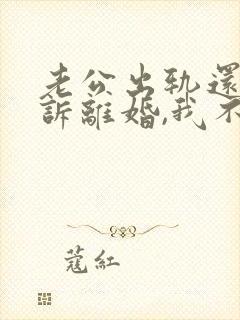 老公出軌還
訴離婚,我不
蔻紅